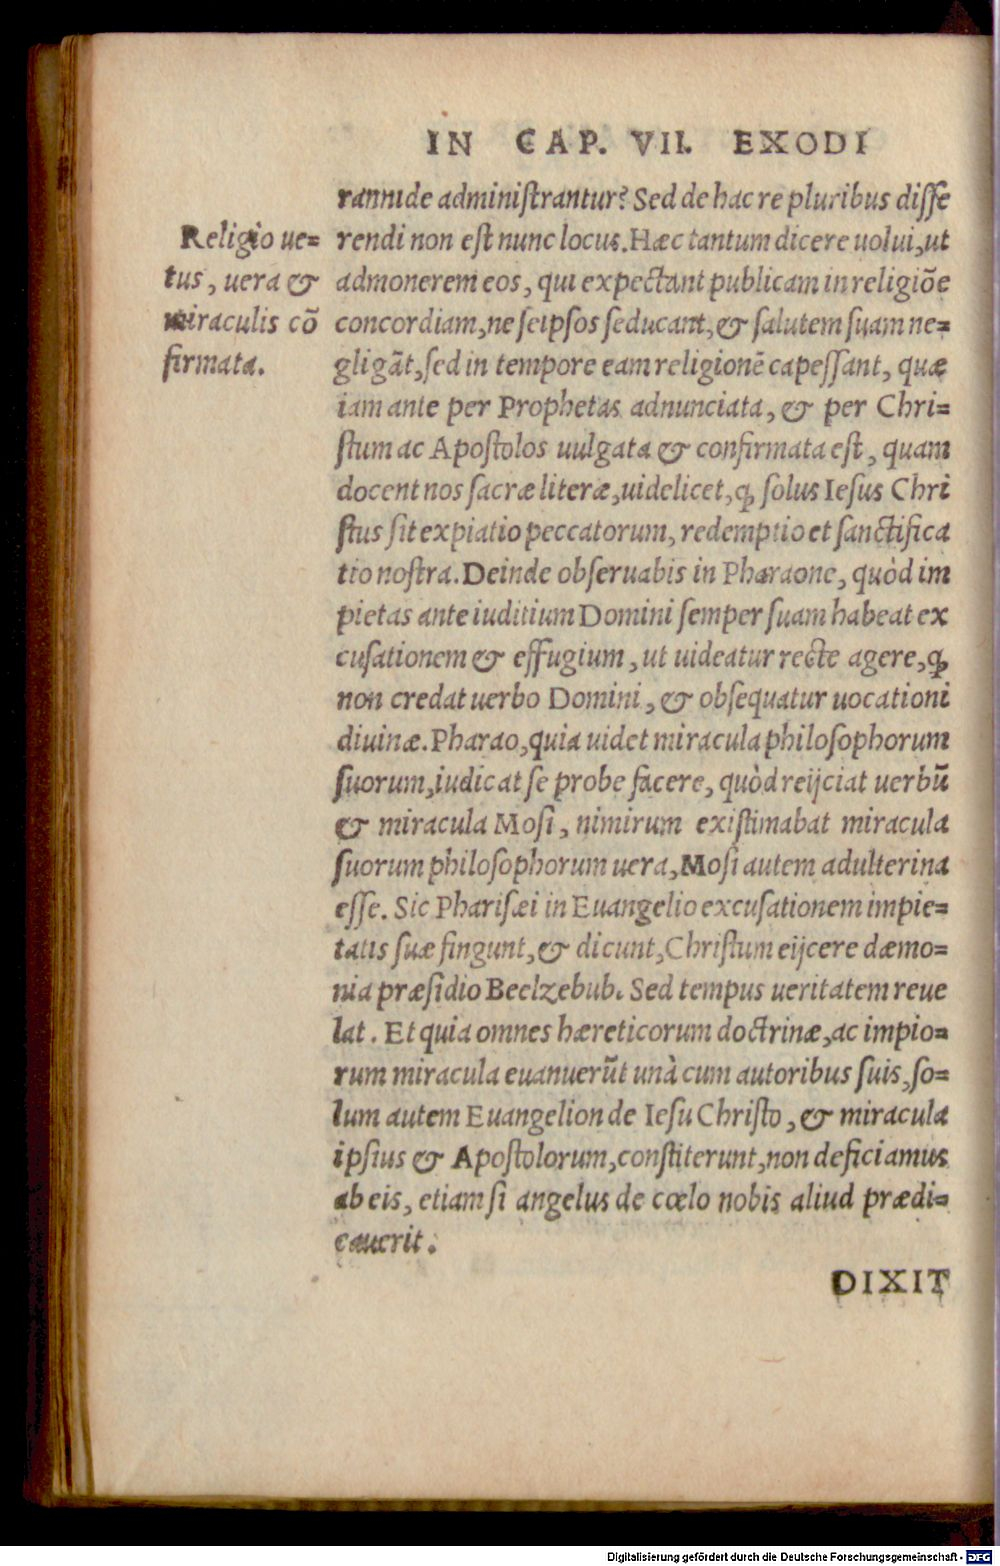 IN CAP. VII. EXODI
rannide administrantur? Sed de hac re pluribus disse
rendi non est nunc locus. Hæc tantum dicere uolui, ut
admonerem eos, qui expectant publicam in religiōe
concordiam, ne seipsos seducant, & salutem suam ne=
gligāt, sed in tempore eam religionē capessant, quæ
iam ante per Prophetas adnunciata, & per Chri=
stum ac Apostolos uulgata & confirmata est, quam
docent nos sacræ literæ, uidelicet, ꝙ solus Iesus Chri
stus sit expiatio peccatorum, redemptio et sanctifica
tio nostra. Deinde obseruabis in Pharaone, quòd im
pietas ante iuditium Domini semper suam habeat ex
cusationem & effugium, ut uideatur recte agere, ꝙ
non credat uerbo Domini, & obsequatur uocationi
diuinæ. Pharao, quia uidet miracula philosophorum
suorum, iudicat se probe facere, quòd reijciat uerbū
& miracula Mosi, nimirum existimabat miracula
suorum philosophorum uera, Mosi autem adulterina
esse. Sic Pharisæi in Euangelio excusationem impie=
tatis suæ fingunt, & dicunt, Christum eijcere dæmo=
nia præsidio Beelzebub. Sed tempus ueritatem reue
lat. Et quia omnes hæreticorum doctrinæ, ac impio=
rum miracula euanuerūt unà cum autoribus suis, so=
lum autem Euangelion de Iesu Christo, & miracula
ipsius & Apostolorum, constiterunt, non deficiamus
ab eis, etiam si angelus de cœlo nobis aliud prædi=
cauerit.
DIXIT
Religio ue=
tus, uera &
miraculis cō
firmata.
Digitalisierung gefördert durch die Deutsche Forschungsgemeinschaft - DFG